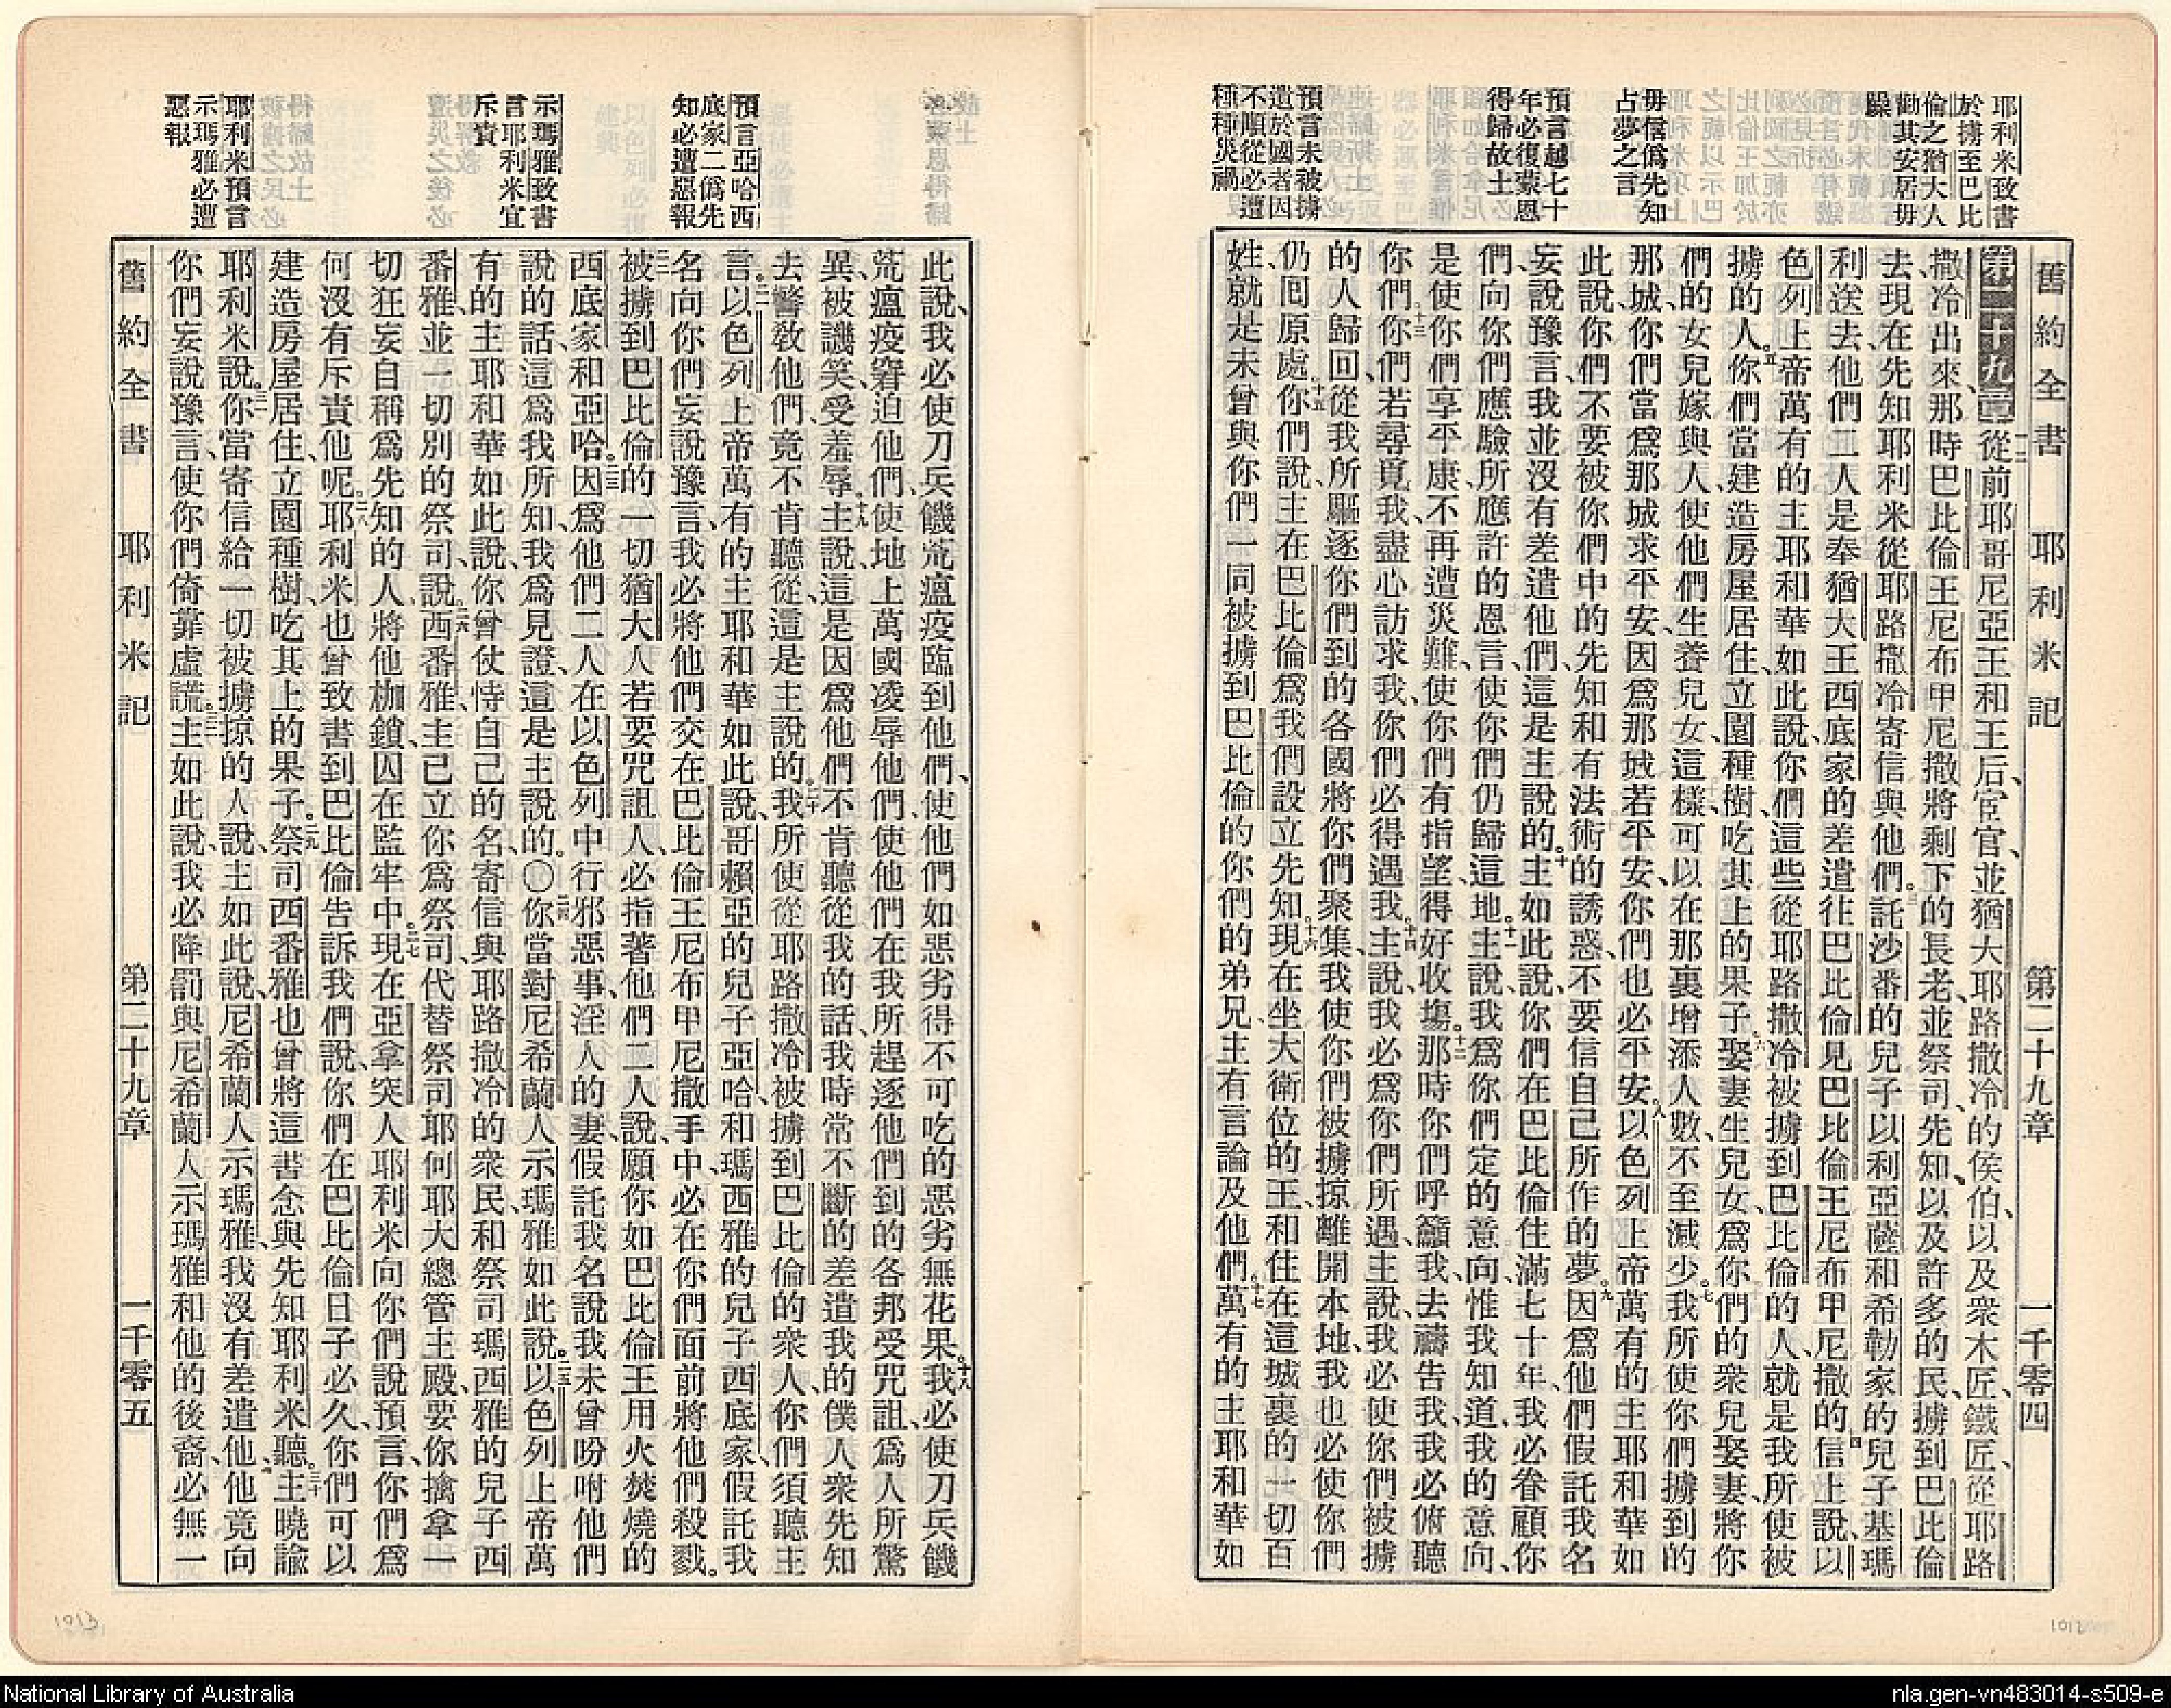 舊約全書　耶利米記　第二十九章　一千零四
耶利米致書
於擄至巴比
倫之猶大人
勸其安居毋
躁
毋信僞先知
占夢之言
預言越七十
年必復蒙恩
得歸故土
預言未被擄
遣於國者因
不順從必遭
種種災禍
第二十九章 一二從前耶哥尼亞王和王后、宦官、並猶大耶路撒冷的侯伯、以及衆木匠、鐵匠、從耶路
撒冷出來、那時巴比倫王尼布甲尼撒將剩下的長老、並祭司、先知、以及許多的民、擄到巴比倫
去、現在先知耶利米從耶路撒冷寄信與他們。三託沙番的兒子以利亞薩和希勒家的兒子基瑪
利送去、他們二人是奉猶大王西底家的差遣往巴比倫見巴比倫王尼布甲尼撒的。四信上說、以
色列上帝萬有的主耶和華如此說、你們這些從耶路撒冷被擄到巴比倫的人、就是我所使被
擄的人。五你們當建造房屋居住、立園種樹、吃其上的果子。六娶妻生兒女、爲你們的衆兒娶妻、將你
們的女兒嫁與人、使他們生養兒女、這樣、可以在那裏增添人數、不至減少。七我所使你們擄到的
那城、你們當爲那城求平安、因爲那城若平安、你們也必平安。八以色列上帝萬有的主耶和華如
此說、你們不要被你們中的先知和有法術的誘惑、不要信自己所作的夢。九因爲他們假託我名
妄說豫言、我並沒有差遣他們、這是主說的。十主如此說、你們在巴比倫住滿七十年、我必眷顧你
們、向你們應驗所應許的恩言、使你們仍歸這地。十一主說、我爲你們定的意向、惟我知道、我的意向、
是使你們享平康、不再遭災難、使你們有指望、得好收塲。十二那時你們呼籲我、去禱告我、我必俯聽
你們。十三你們若尋覓我、盡心訪求我、你們必得遇我。十四主說、我必爲你們所遇、主說、我必使你們被擄
的人歸回、從我所驅逐你們到的各國、將你們聚集、我使你們被擄掠離開本地、我也必使你們
仍囘原處。十五你們說、主在巴比倫爲我們設立先知。十六現在坐大衛位的王、和住在這城裏的一切百
姓、就是未曾與你們一同被擄到巴比倫的你們的弟兄、主有言論及他們。十七萬有的主耶和華如
預言亞哈西
底家二僞先
知必遭惡報
示瑪雅致書
言耶利米宜
斥責
耶利米預言
示瑪雅必遭
惡報
此說、我必使刀兵饑荒瘟疫臨到他們、使他們如惡劣得不可吃的惡劣無花果。十八我必使刀兵饑
荒瘟疫窘迫他們、使地上萬國凌辱他們、使他們在我所趕逐他們到的各邦受咒詛、爲人所驚
異、被譏笑、受羞辱。十九主說、這是因爲他們不肯聽從我的話、我時常不斷的差遣我的僕人衆先知
去警教他們、竟不肯聽從、這是主說的。二十我所使從耶路撒冷被擄到巴比倫的衆人、你們須聽主
言。二一以色列上帝萬有的主耶和華如此說、哥賴亞的兒子亞哈、和瑪西雅的兒子西底家、假託我
名向你們妄說豫言、我必將他們交在巴比倫王尼布甲尼撒手中、必在你們面前將他們殺戮。
二二被擄到巴比倫的一切猶大人、若要咒詛人、必指著他們二人說、願你如巴比倫王用火焚燒的
西底家和亞哈。二三因爲他們二人在以色列中行邪惡事、淫人的妻、假託我名說我未曾吩咐他們
說的話、這爲我所知、我爲見證、這是主說的。〇二四你當對尼希蘭人示瑪雅如此說。二五以色列上帝萬
有的主耶和華如此說、你曾仗恃自己的名、寄信與耶路撒冷的衆民和祭司瑪西雅的兒子西
番雅、並一切別的祭司、說。二六西番雅、主已立你爲祭司、代替祭司耶何耶大總管主殿、要你擒拿一
切狂妄自稱爲先知的人、將他枷鎖、囚在監牢中。二七現在亞拿突人耶利米向你們說預言、你們爲
何沒有斥責他呢。二八耶利米也曾致書到巴比倫告訴我們說、你們在巴比倫日子必久、你們可以
建造房屋居住、立園種樹、吃其上的果子。二九祭司西番雅也曾將這書念與先知耶利米聽。三十主曉諭
耶利米說。三一你當寄信給一切被擄掠的人、說、主如此說、尼希蘭人示瑪雅、我沒有差遣他、他竟向
你們妄說豫言、使你們倚靠虛謊。三二主如此說、我必降罰與尼希蘭人示瑪雅和他的後裔、必無一
舊約全書　耶利米記　第二十九章　一千零五
1013
1012
National Library of Australia
nla.gen-vn483014-s509-e